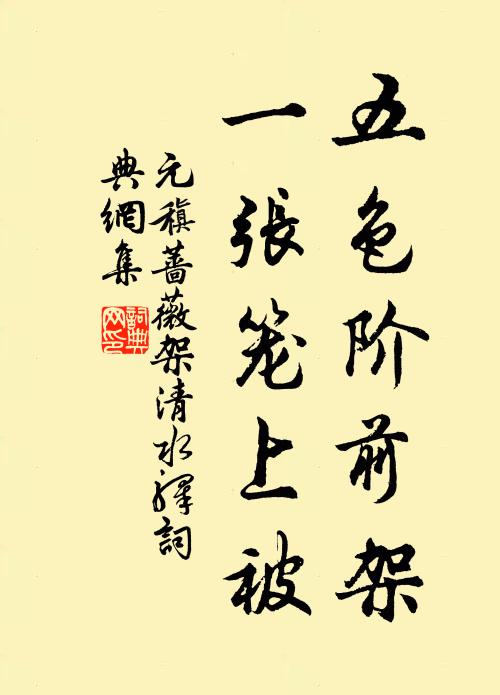 五色阶前架
一張笼上被
元稹蔷薇架清水驛詞
典網集
詞典
网印